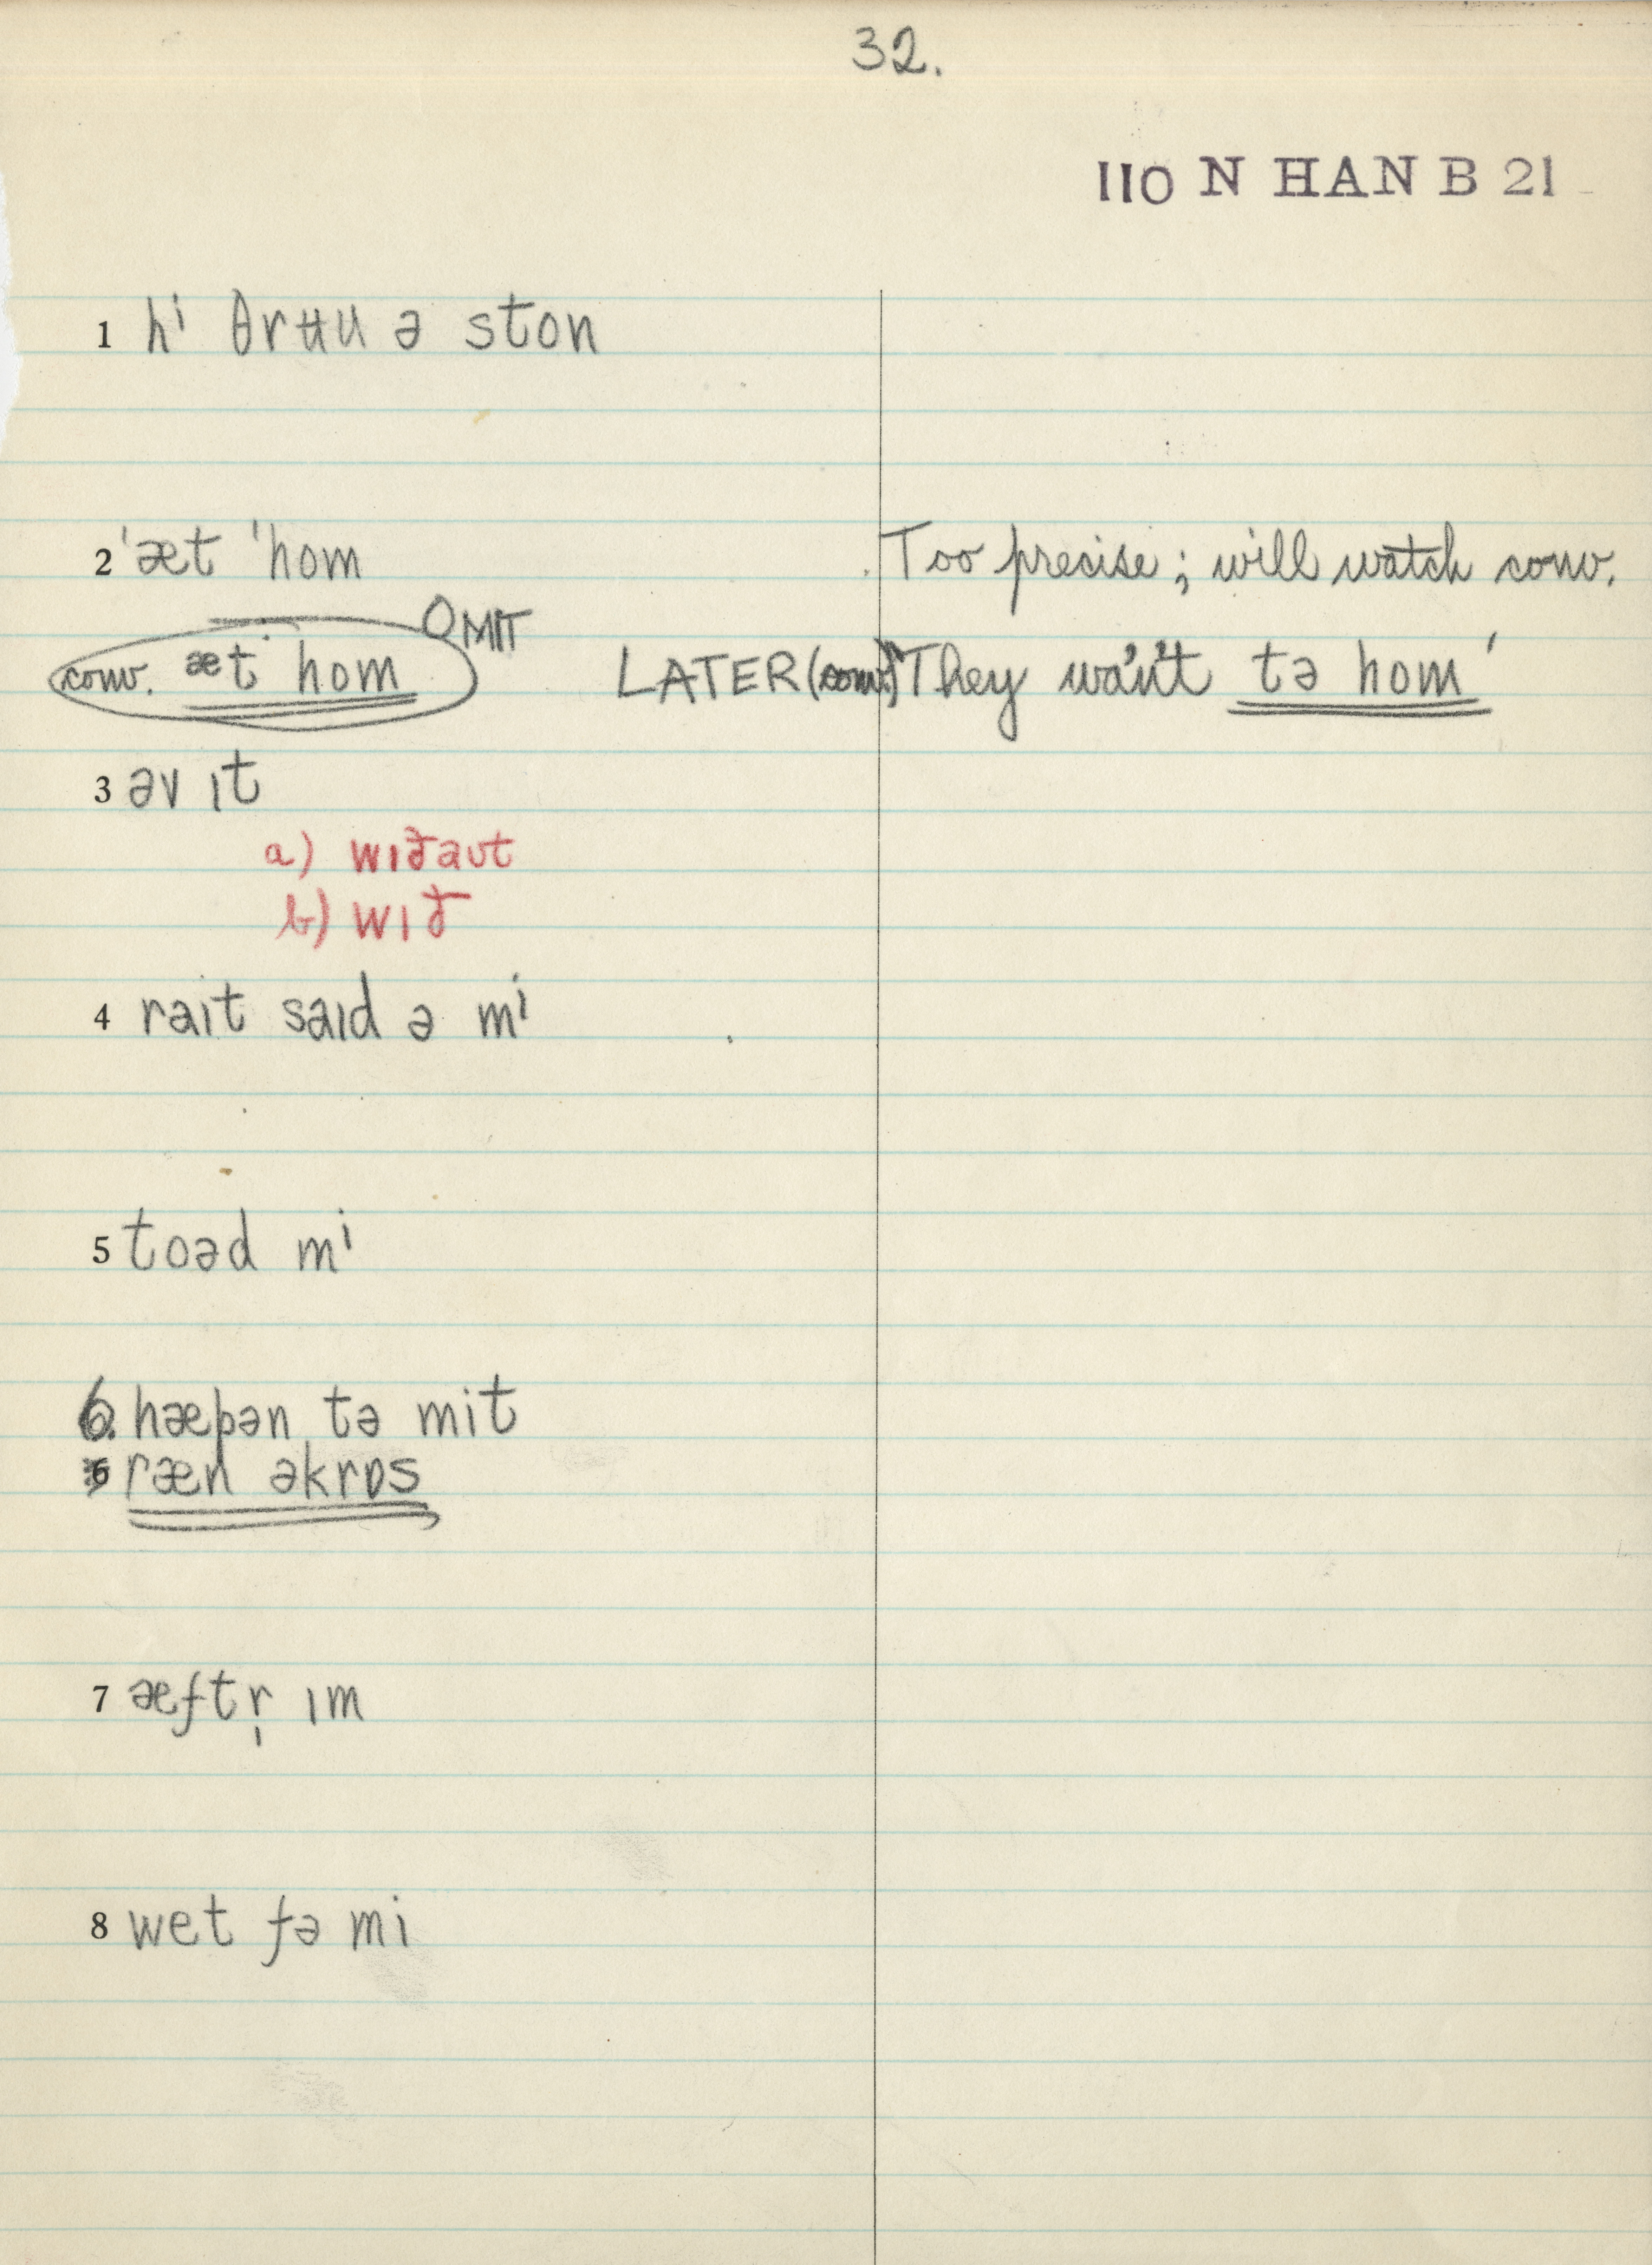 32.
110 N HAN B 21
1 hⁱ θrʉu ə ston
2 ˈæt ˈhom Too precise; will watch conv.
OMIT
conv. æt hom LATER (conv.) "They wa'n't tə hom"
3 əv ɪt
a) wɪðaʊt
b) wɪð
4 raɪt saɪd ə mⁱ
5 toəd mⁱ
6. hæpən tə mit
6 ræn əkrɒs
7 æftr̩ ɪm
8 wet fə mi